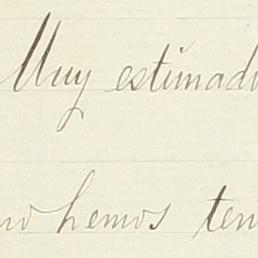 Muy estimad
no hemos ten